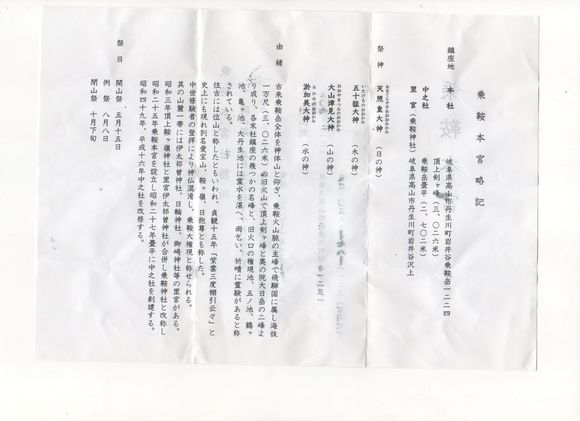 乗鞍本宮略記
鎮座地　本　社　岐阜県高山市丹生川町岩井谷乗鞍岳一二二四
頂上剣ヶ峰（三、〇二六米）
中之社　乗鞍岳畳平（二、七〇二米）
里　宮（乗鞍神社）　岐阜県高山市丹生川町岩井谷沢上
祭　神　天照皇大神　（日の神）
五十猛大神　（木の神）
大山津見大神　（山の神）
淤加美大神　（水の神）
由　緒　古来乗鞍岳全体を神体山と仰ぎ、乗鞍火山脈の主峰で飛騨国に属し海抜
一万尺（三、〇二六米）の旧火山で頂上剣ヶ峰と奥の院大日岳の二峰よ
り成り、各末社鎮座の幾つかの名峰と、旧火口の権現池、五ノ池、鶴ヶ
池、亀ヶ池、大丹生池には霊水を湛へ、雨乞い、祈晴に霊験があると称
されている。
往古には位山と称したともいわれ、貞観十五年「紫雲三度棚引云々」と
史上にも現れ別名愛宝山、鞍ヶ嶺、日抱尊とも称した。
中世修験者の登拝により神仏混淆し、乗鞍大権現と称せられる。
其の山麓一帯には伊太祁曽神社、日輪神社、御崎神社等の里宮がある。
昭和三年頂上鞍ヶ嶺神社と里宮伊太祁曽神社が合併し乗鞍神社と改称し
昭和二十五年乗鞍本宮を設立し昭和二十七年畳平に中之社を創建する。
昭和四十九年、平成十六年中之社を改修する。
祭　日　開山祭　五月十五日
例　祭　八月八日
閉山祭　十月下旬